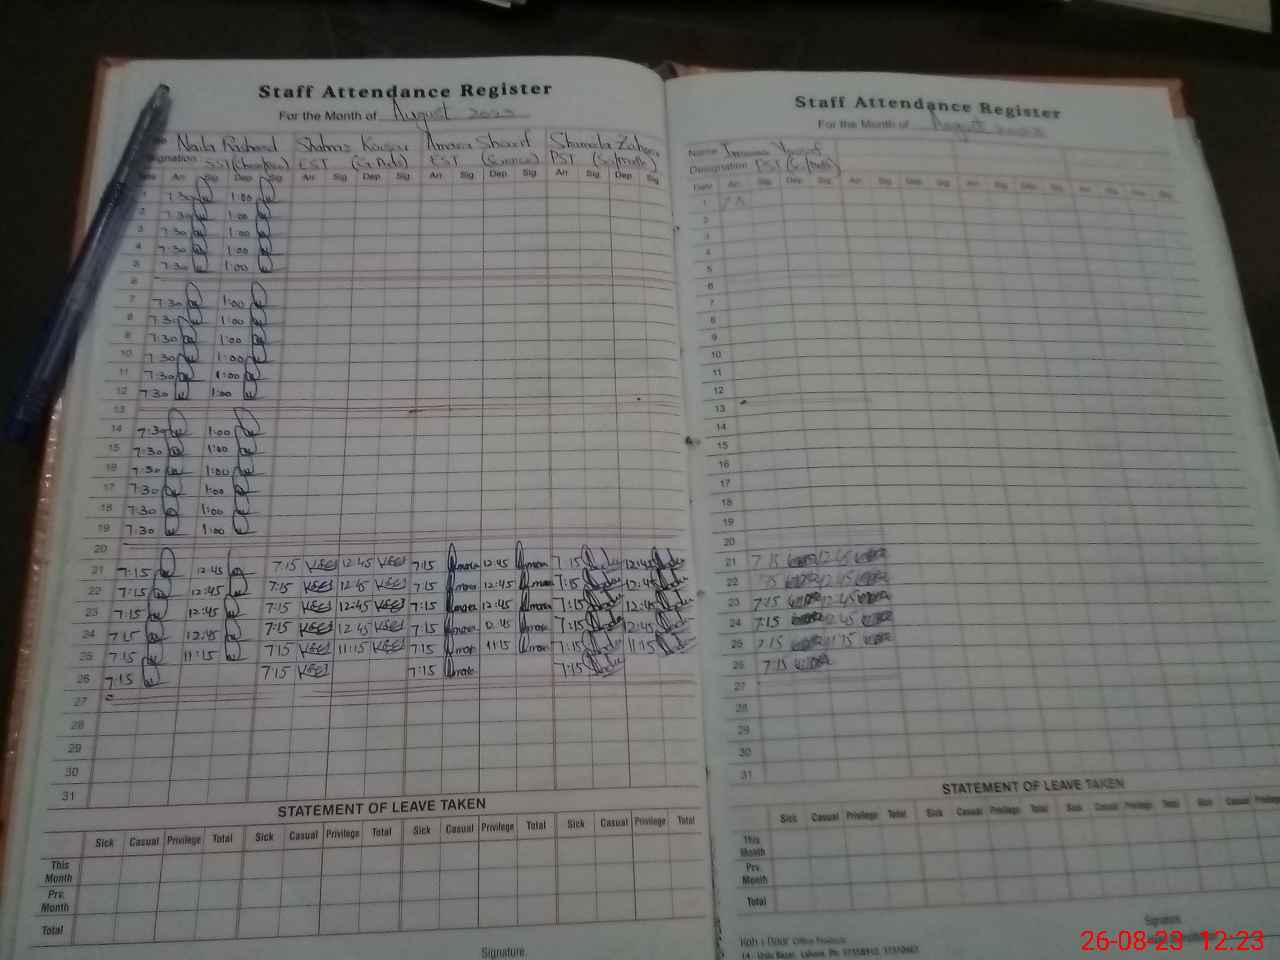 Staff Attendance Register
For the Month of August 2023
Naila Rasheed Shahnaz Kousar Amara Sharif Shamela Zahoor
signation SST (Chem/Bio) EST (G. Arts) EST (Science) PST (Sc/math)
Date Arr Sig Dep Sig Arr Sig Dep Sig Arr Sig Dep Sig Arr Sig Dep Sig
1 7:30 1:00
2 7:30 1:00
3 7:30 1:00
4 7:30 1:00
5 7:30 1:00
6
7 7:30 1:00
8 7:30 1:00
9 7:30 1:00
10 7:30 1:00
11 7:30 1:00
12 7:30 1:00
13
14 7:30 1:00
15 7:30 1:00
16 7:30 1:00
17 7:30 1:00
18 7:30 1:00
19 7:30 1:00
20
21 7:15 12:45 7:15 12:45 7:15 12:45 7:15 12:45
22 7:15 12:45 7:15 12:45 7:15 12:45 7:15 12:45
23 7:15 12:45 7:15 12:45 7:15 12:45 7:15 12:45
24 7:15 12:45 7:15 12:45 7:15 12:45 7:15 12:45
25 7:15 11:15 7:15 11:15 7:15 11:15 7:15 11:15
26 7:15 7:15 7:15 7:15
27
28
29
30
31
STATEMENT OF LEAVE TAKEN
Sick Casual Privilege Total Sick Casual Privilege Total Sick Casual Privilege Total Sick Casual Privilege Total
This Month
Prv. Month
Total
Signature
Staff Attendance Register
For the Month of August 2023
Name Yousaf
Designation PST
Date Arr Sig Dep Sig Arr Sig Dep Sig Arr Sig Dep Sig Arr Sig Dep Sig
1
2
3
4
5
6
7
8
9
10
11
12
13
14
15
16
17
18
19
20
21 7:15 12:45
22 7:15 12:45
23 7:15 12:45
24 7:15 12:45
25 7:15 11:15
26 7:15
27
28
29
30
31
STATEMENT OF LEAVE TAKEN
Sick Casual Privilege Total Sick Casual Privilege Total Sick Casual Privilege
This Month
Prv. Month
Total
Signature
Koh i Noor Office Products
14 - Urdu Bazar, Lahore. Ph:
26-08-23 12:23